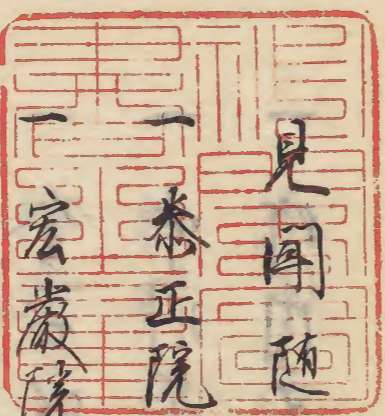 見聞随
一泰正院
一宏巌院